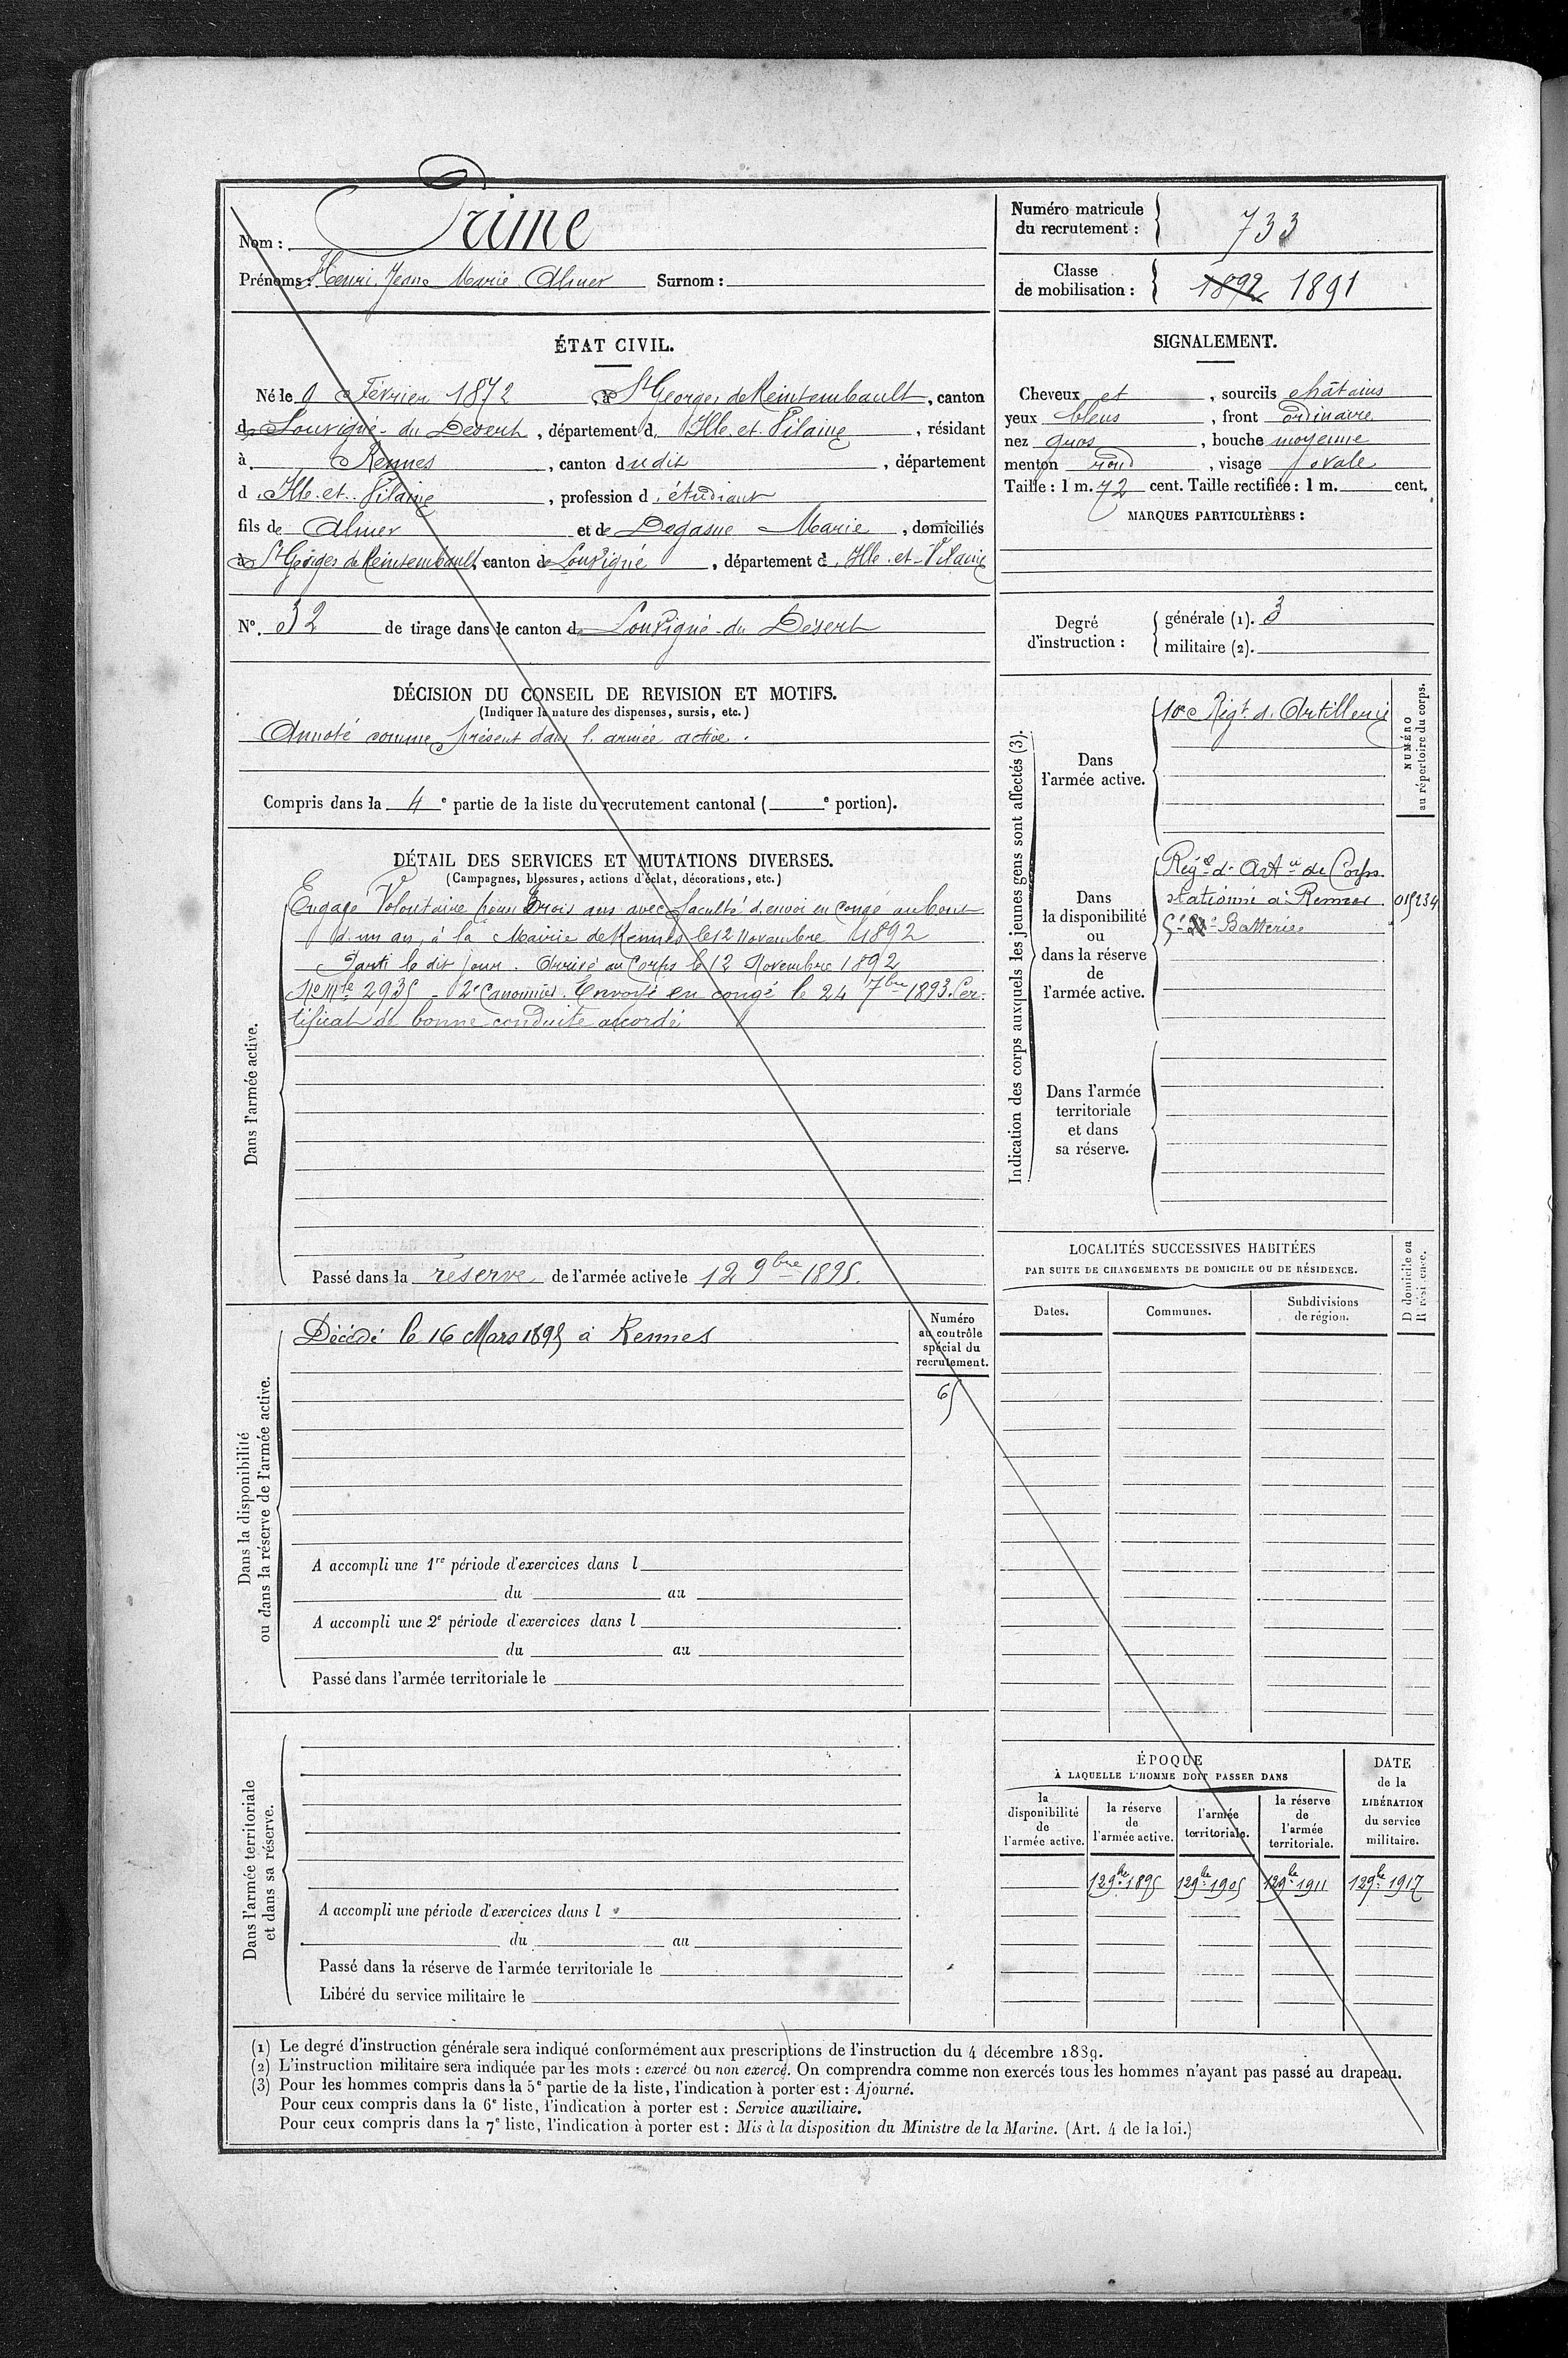 Nom : Prime
Prénoms : Henri Jean Marie Almer Surnom :
Numéro matricule
du recrutement : 733
Classe
de mobilisation : 1892 1891
ÉTAT CIVIL.
Né le 9 Février 1872, à St Georges de Reintembault, canton
de Louvigné-du Désert, département d Ille-et-Vilaine, résidant
à Rennes, canton dudit, département
d Ille-et-Vilaine, profession d étudiant
fils de Almer et de Degasne Marie, domiciliés
à St Georges de Reintembault, canton de Louvigné, département d Ille-et-Vilaine
N°. 32 de tirage dans le canton de Louvigné-du Désert
DÉCISION DU CONSEIL DE REVISION ET MOTIFS.
(Indiquer la nature des dispenses, sursis, etc.)
Annoté comme présent dans l'armée active.
Compris dans la 4e partie de la liste du recrutement cantonal ( e portion).
DÉTAIL DES SERVICES ET MUTATIONS DIVERSES.
(Campagnes, blessures, actions d'éclat, décorations, etc.)
Dans l'armée active.
Engagé Volontaire pour trois ans avec faculté d'envoi en congé au bout
d'un an, à la Mairie de Rennes le 12 Novembre 1892
Parti le dit jour. Arrivé au Corps le 12 Novembre 1892
No Mle 2935 - 2e Canonnier. Envoyé en congé le 24 7bre 1893. Cer-
tificat de bonne conduite accordé
Passé dans la réserve de l'armée active le 12 9bre 1895.
Dans la disponibilité
ou dans la réserve de l'armée active.
Décédé le 16 Mars 1895 à Rennes
Numéro
au contrôle
spécial du
recrutement.
65
A accompli une 1re période d'exercices dans l
du au
A accompli une 2e période d'exercices dans l
du au
Passé dans l'armée territoriale le
Dans l'armée territoriale
et dans sa réserve.
A accompli une période d'exercices dans l
du au
Passé dans la réserve de l'armée territoriale le
Libéré du service militaire le
SIGNALEMENT.
Cheveux et, sourcils châtains
yeux bleus, front ordinaire
nez gros, bouche moyenne
menton rond, visage ovale
Taille : 1 m. 72 cent. Taille rectifiée : 1 m. cent.
MARQUES PARTICULIÈRES :
Degré
d'instruction :
générale (1). 3
militaire (2).
Indication des corps auxquels les jeunes gens sont affectés (3).
Dans
l'armée active.
10e Régt d'Artillerie
NUMÉRO
au répertoire du corps.
Dans
la disponibilité
ou
dans la réserve
de
l'armée active.
Régt d'Artie de Corps
stationné à Rennes
Batterie
015234
Dans l'armée
territoriale
et dans
sa réserve.
LOCALITÉS SUCCESSIVES HABITÉES
PAR SUITE DE CHANGEMENTS DE DOMICILE OU DE RÉSIDENCE.
D domicile ou
R résidence.
Dates.
Communes.
Subdivisions
de région.
ÉPOQUE
À LAQUELLE L'HOMME DOIT PASSER DANS
la
disponibilité
de
l'armée active.
la réserve
de
l'armée active.
l'armée
territoriale.
la réserve
de
l'armée
territoriale.
DATE
de la
LIBÉRATION
du service
militaire.
12 9bre 1895 12 9bre 1905 12 9bre 1911 12 9bre 1917
(1) Le degré d'instruction générale sera indiqué conformément aux prescriptions de l'instruction du 4 décembre 1889.
(2) L'instruction militaire sera indiquée par les mots : exercé ou non exercé. On comprendra comme non exercés tous les hommes n'ayant pas passé au drapeau.
(3) Pour les hommes compris dans la 5e partie de la liste, l'indication à porter est : Ajourné.
Pour ceux compris dans la 6e liste, l'indication à porter est : Service auxiliaire.
Pour ceux compris dans la 7e liste, l'indication à porter est : Mis à la disposition du Ministre de la Marine. (Art. 4 de la loi.)